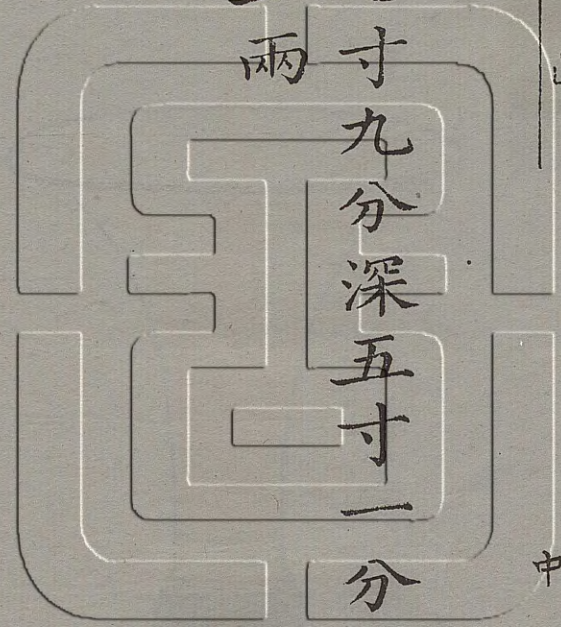 中
寸九分深五寸一分
兩